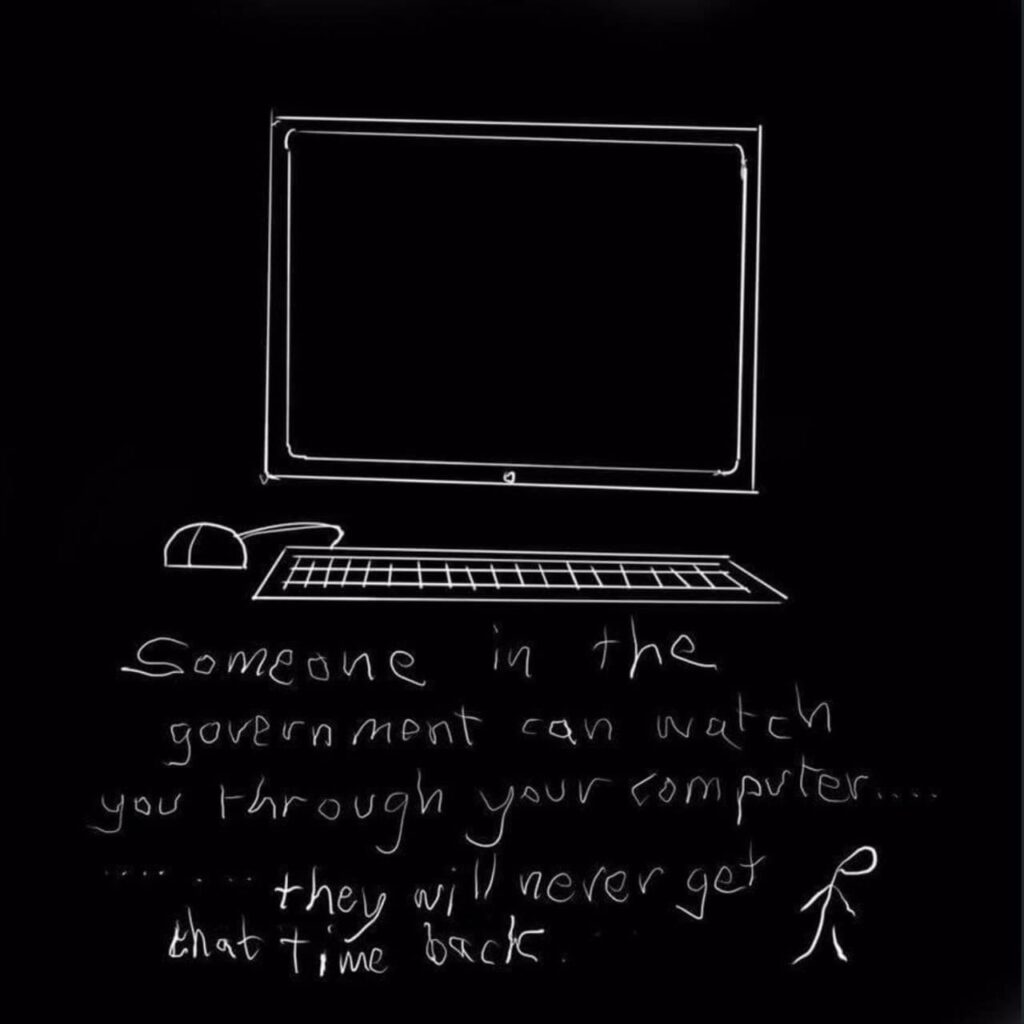 Someone in the
government can watch
you through your computer....
..... ... they will never get
that time back.